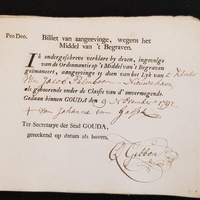 Pro Deo.
Billiet van aangeevinge, wegens het
Middel van 't Begraven.
Ik ondergeschreve verklare by dezen, ingevolge
van de Ordonnantie op 't Middel van 't Begraven
geëmaneert, aangeevinge te doen van het Lyk van
van Jacob
als gehoorende onder de Classis van d' onvermogende.
Gedaan binnen GOUDA, den 9 November 1792
Johannes van
Ter Secretarye der Stad GOUDA,
geteekend op datum als boven.